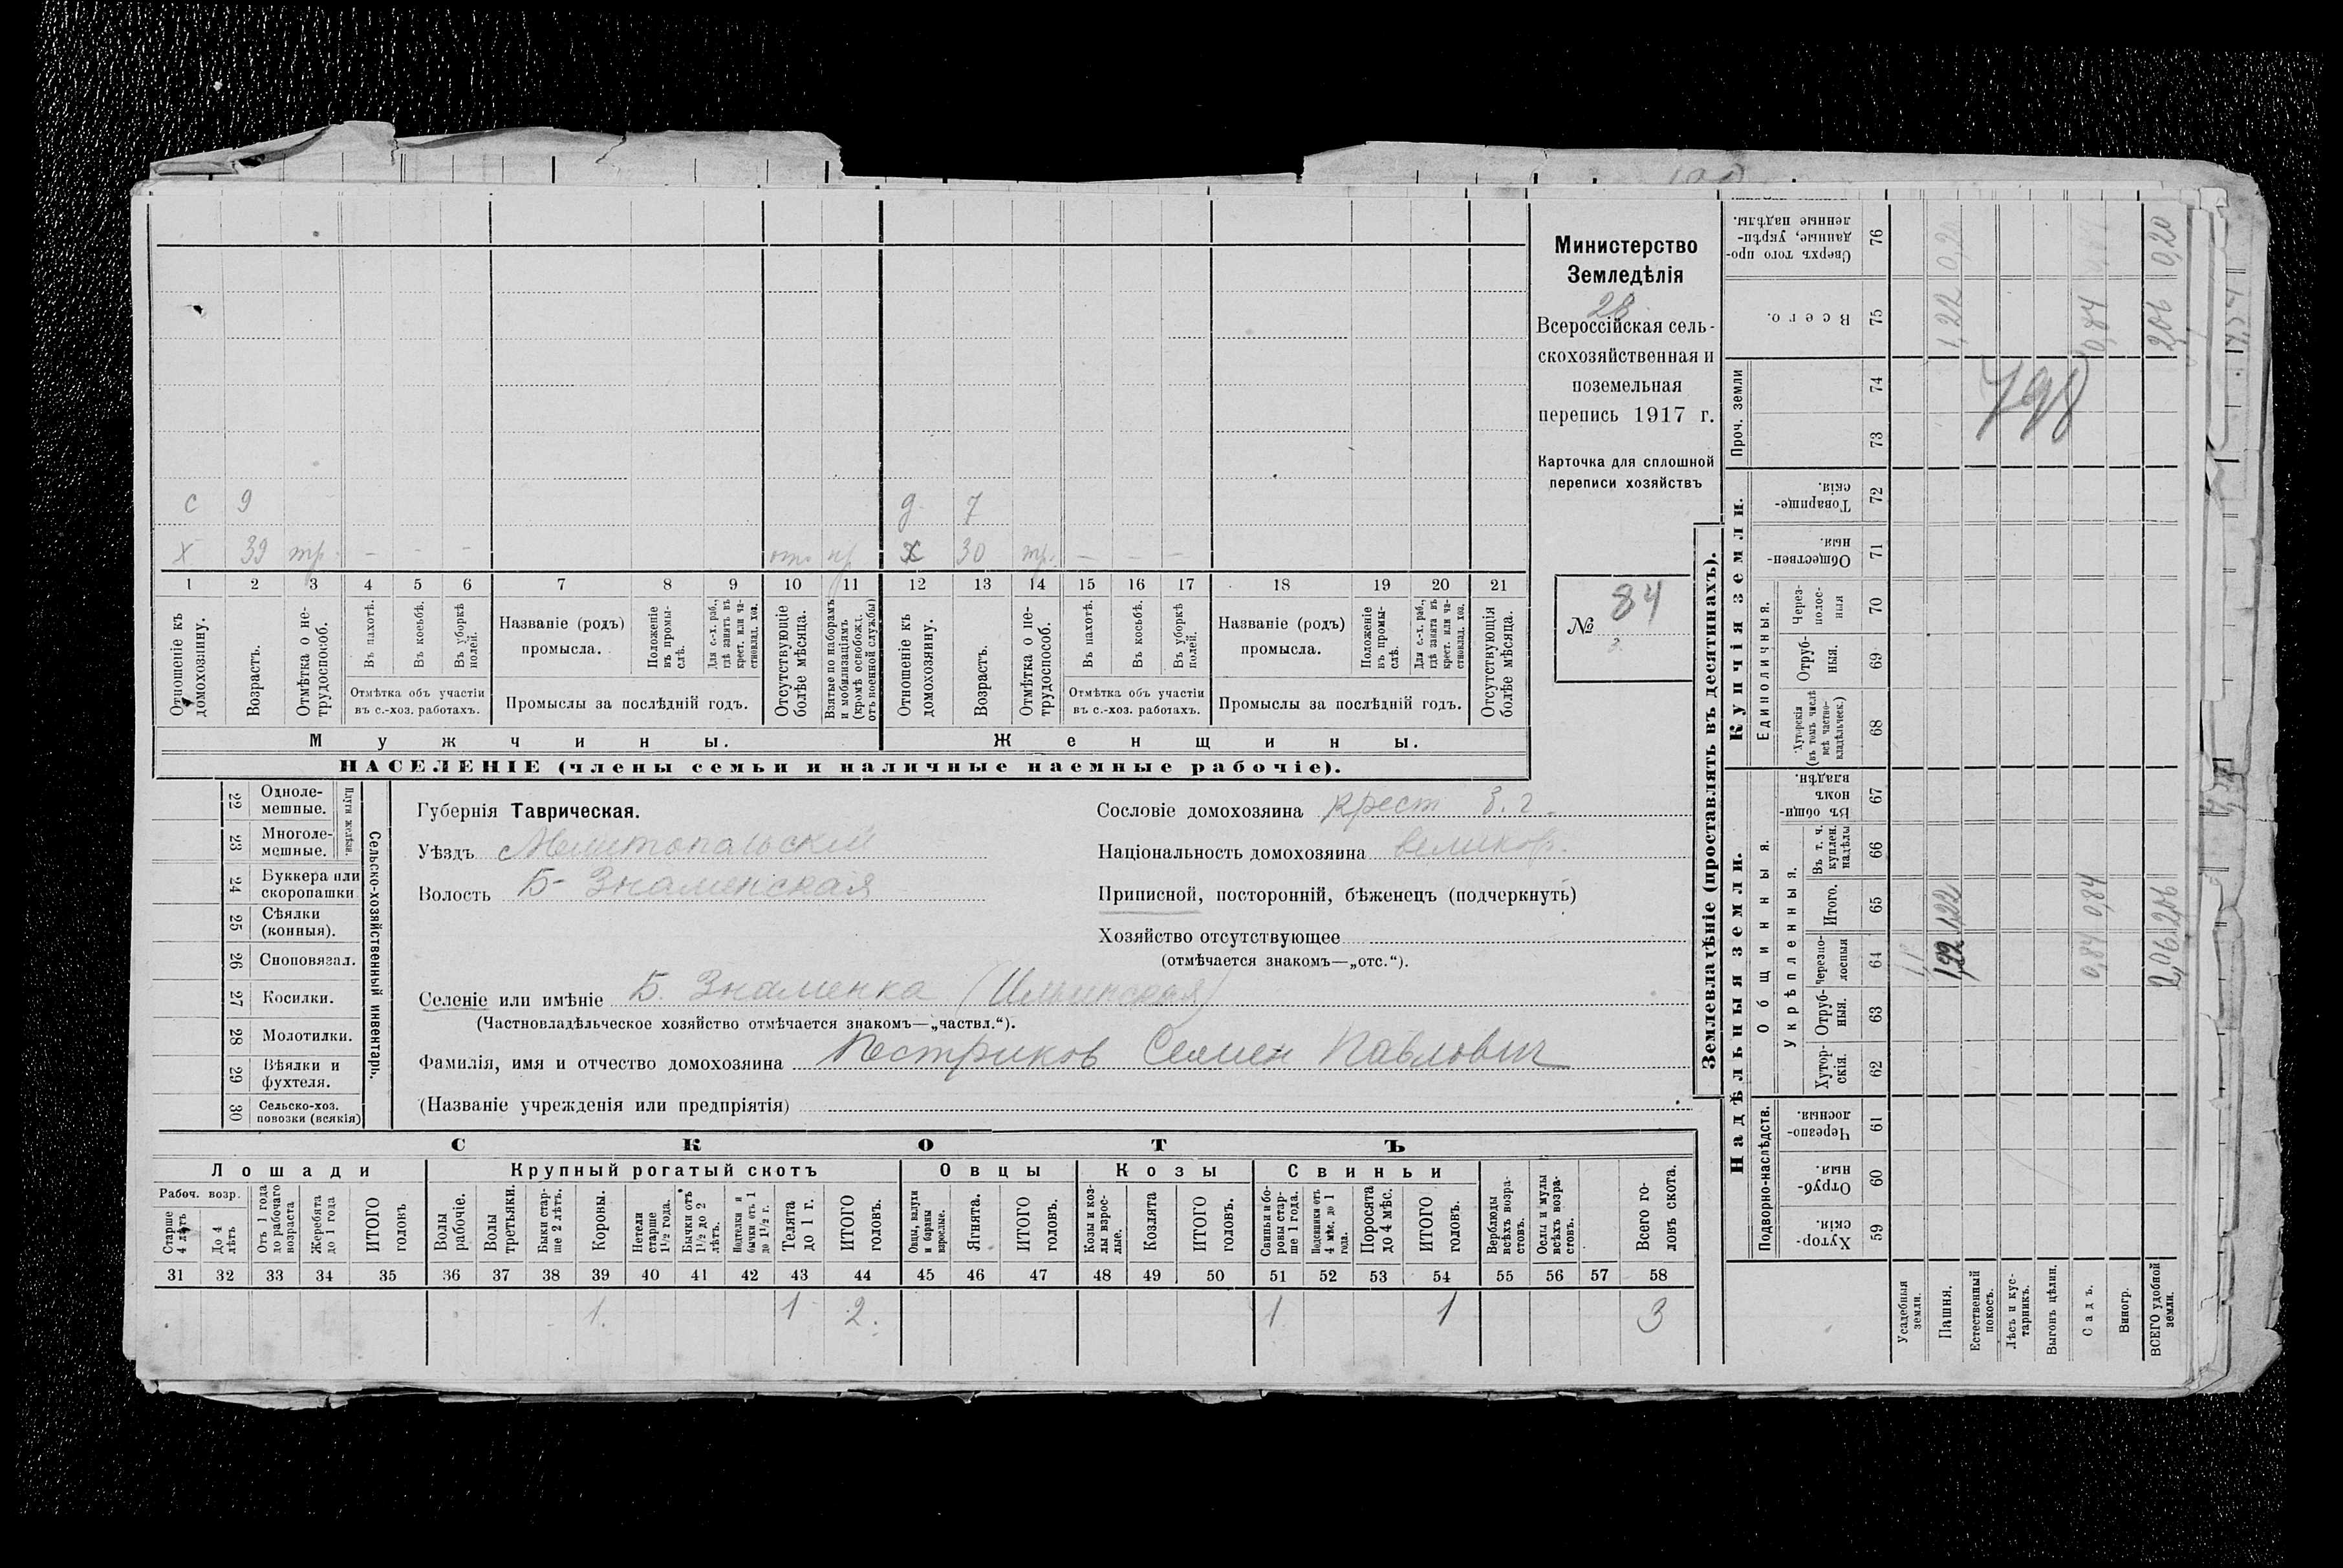 с 9 д. 7
х 39 тр. - - - х 30 тр. - - -
1 2 3 4 5 6 7 8 9 10 11 12 13 14 15 16 17 18 19 20 21
Отношеніе къ домохозяину.
Возрастъ.
Отмѣтка о не-трудоспособ.
Въ пахотѣ.
Въ косьбѣ.
Въ уборкѣ полей.
Отмѣтка объ участіи
въ с.-хоз. работахъ.
Названіе (родъ)
промысла.
Положеніе въ промы-слѣ.
Для с.-х. раб., гдѣ занятъ въ крест. или ча-стновлад. хоз.
Промыслы за послѣдній годъ.
Отсутствующіе болѣе мѣсяца.
Взятые по наборамъ и мобилизаціямъ (кромѣ освобожд. отъ военной службы)
Отношеніе къ домохозяину.
Возрастъ.
Отмѣтка о не-трудоспособ.
Въ пахотѣ.
Въ косьбѣ.
Въ уборкѣ полей.
Отмѣтка объ участіи
въ с.-хоз. работахъ.
Названіе (родъ)
промысла.
Положеніе въ промы-слѣ.
Для с.-х. раб., гдѣ занята въ крест. или ча-стновлад. хоз.
Промыслы за послѣдній годъ.
Отсутствующія болѣе мѣсяца.
Мужчины.
Женщины.
НАСЕЛЕНІЕ (члены семьи и наличные наемные рабочіе).
Министерство
Земледѣлія
28
Всероссійская сель-
скохозяйственная и
поземельная
перепись 1917 г.
Карточка для сплошной
переписи хозяйствъ
№ 84
3.
22 Одноле-мешные.
23 Многоле-мешные.
Плуги желѣзн.
24 Буккера или скоропашки
25 Сѣялки (конныя).
26 Сноповязал.
27 Косилки.
28 Молотилки.
29 Вѣялки и фухтеля.
30 Сельско-хоз. повозки (всякія)
Сельско-хозяйственный инвентарь.
Губернія Таврическая.
Уѣздъ Мелитопольскій
Волость Б-Знаменская
Сословіе домохозяина крест
Національность домохозяина великор.
Приписной, посторонній, бѣженецъ (подчеркнуть)
Хозяйство отсутствующее
(отмѣчается знакомъ—„отс.“).
Селеніе или имѣніе Б. Знаменка (Ильинская)
(Частновладѣльческое хозяйство отмѣчается знакомъ—„частвл.“).
Фамилія, имя и отчество домохозяина Пестриков Семен Павлович
(Названіе учрежденія или предпріятія)
СКОТЪ
Лошади Крупный рогатый скотъ Овцы Козы Свиньи
Рабоч. возр.
Старше 4 лѣтъ
До 4 лѣтъ
Отъ 1 года до рабочаго возраста
Жеребята до 1 года
ИТОГО головъ
Волы рабочіе.
Волы третьяки.
Быки стар-ше 2 лѣтъ.
Коровы.
Нетели старше 1½ года.
Бычки отъ 1½ до 2 лѣтъ.
Подтелки и бычки отъ 1 до 1½ г.
Телята до 1 г.
ИТОГО головъ.
Овцы, валухи и бараны взрослые.
Ягнята.
ИТОГО головъ.
Козы и коз-лы взрос-лые.
Козлята
ИТОГО головъ.
Свиньи и бо-ровы стар-ше 1 года.
Подсвинки отъ 4 мѣс. до 1 года.
Поросята до 4 мѣс.
ИТОГО головъ.
Верблюды всѣхъ возра-стовъ.
Ослы и мулы всѣхъ возра-стовъ.
Всего го-ловъ скота.
31 32 33 34 35 36 37 38 39 40 41 42 43 44 45 46 47 48 49 50 51 52 53 54 55 56 57 58
1. 1 2. 1 1 3
Землевладѣніе (проставлять въ десятинахъ).
Надѣльныя земли. Купчія земли.
Подворно-наслѣдств.
Общинныя.
Укрѣпленныя.
Единоличныя.
Проч. земли
Хутор-скія. 59
Отруб-ныя. 60
Черезпо-лосныя. 61
Хутор-скія. 62
Отруб-ныя. 63
Черезпо-лосныя 64
Итого. 65
Въ т. ч. куплен. надѣлы 66
Въ общи-номъ владѣн. 67
Хуторскія (въ томъ числѣ всѣ частно-владѣльческ.) 68
Отруб-ныя. 69
Через-полос-ныя 70
Обществен-ныя. 71
Товарище-скія. 72
73
74
Всего. 75
Сверхъ того про-данные, укрѣп-ленные надѣлы. 76
Усадебныя земли.
Пашня. 1,22 1,22 1,22 0,20
Естественный покосъ.
Лѣсъ и кус-тарникъ.
Выгонъ цѣлин.
Садъ. 0,84 0,84 0,84
Виногр.
ВСЕГО удобной земли. 2,06 2,06 2,06 0,20
798